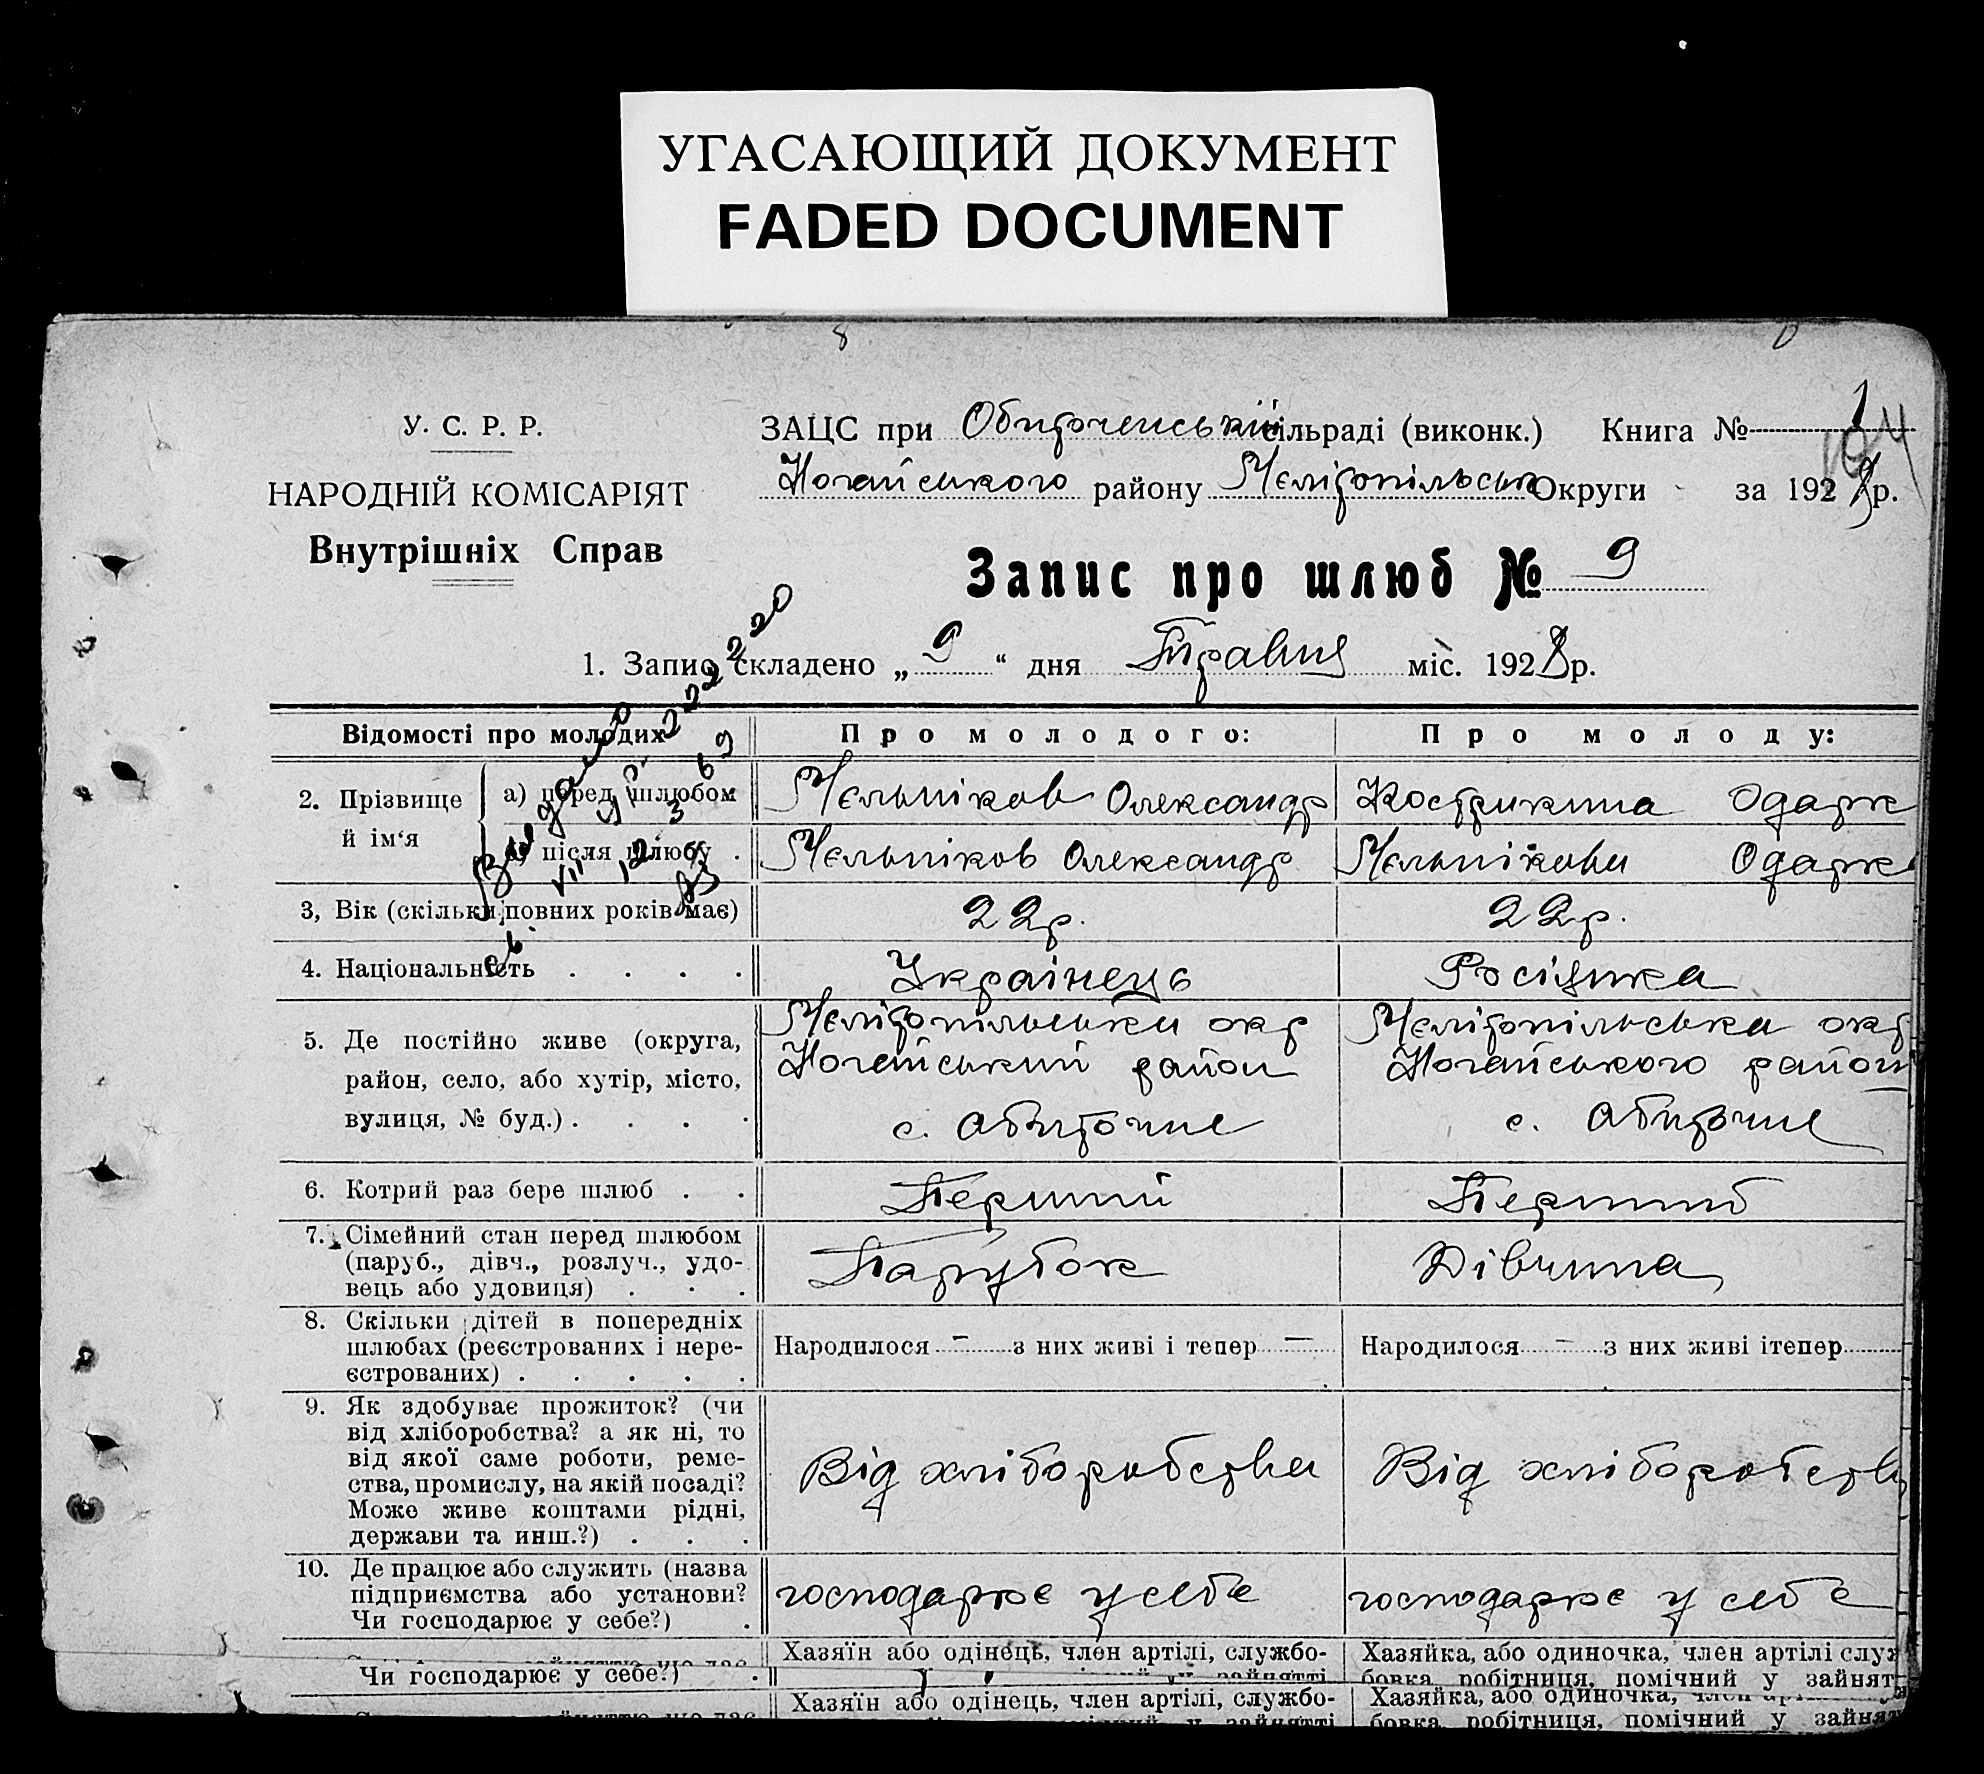 УГАСАЮЩИЙ ДОКУМЕНТ
FADED DOCUMENT
У. С. Р. Р.
НАРОДНІЙ КОМІСАРІЯТ
Внутрішніх Справ
ЗАЦС при Обиточенській сільраді (виконк.) Книга № 1
Ногайського району Мелітопільськ Округи за 1928 р.
Запис про шлюб № 9
1. Запис складено „ 9 “ дня Травня міс. 1928 р.
Відомості про молодих
Про молодого:
Про молоду:
2. Прізвище й ім‘я
а) перед шлюбом
Мельніков Олександр
Кострикина Одарк
б) після шлюбу .
Мельніков Олександр
Мельнікова Одарк
3, Вік (скільки повних років має)
22 р.
22 р.
4. Національність . . . .
Українець
Росіянка
5. Де постійно живе (округа,
район, село, або хутір, місто,
вулиця, № буд.) . . . .
Мелітопільська окр
Ногайський район
с. Обиточне
Мелітопільська окр
Ногайського район
с. Обиточне
6. Котрий раз бере шлюб . .
Перший
Перший
7. Сімейний стан перед шлюбом
(паруб., дівч., розлуч., удо-
вець або удовиця) . . .
Парубок
Дівчина
8. Скільки дітей в попередніх
шлюбах (реєстрованих і нере-
єстрованих) . . . . .
Народилося — з них живі і тепер —
Народилося — з них живі ітепер
9. Як здобуває прожиток? (чи
від хліборобства? а як ні, то
від якої саме роботи, реме-
ства, промислу, на якій посаді?
Може живе коштами рідні,
держави та инш.?) . . .
Від хліборобства
Від хліборобств
10. Де працює або служить (назва
підприємства або установи?
Чи господарює у себе?) .
господарює у себе
господарює у себе
Хазяїн або одінець, член артілі, службо-
Хазяйка, або одиночка, член артілі служ
бовка робітниця, помічний у зайнят
Чи господарює у себе?) .
Хазяїн або одінець, член артілі, службо-
Хазяйка, або одиночка,
бовка, робітниця, помічний у зайнят